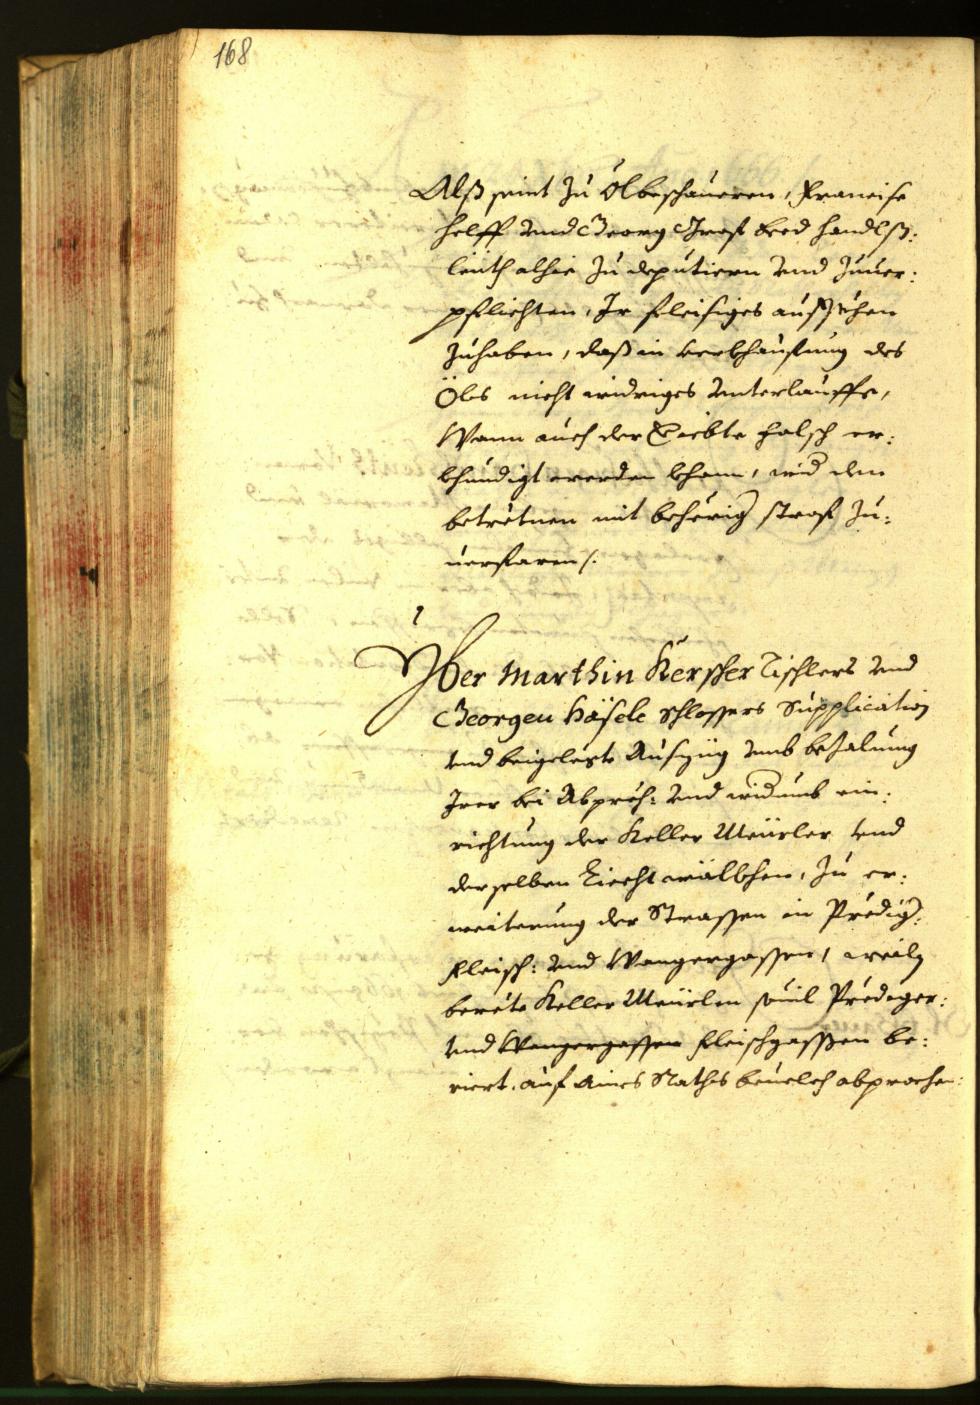 168
Alß seint zu Ölbeschaueren, Francisc
Helff vnd Georg Jrast beed handlß:
leüth alhie zu deputiern vnd zuuer:
pflichten, Ir fleisiges aufsehen
zuhaben, daß in verkhauffung des
Öles nicht widriges vnterlauffe,
Wann auch der falsch er:
khundigt werden khann, wid den
betretnen mit behörig straf zu:
uerfaren /.
Yber Marthin Kerscher Tischlers vnd
Georgen Häfele Schlossers Supplication
vnd beigelegte Auszüg vmb bezalung
Irer bei Abprech: vnd widumb ein:
richtung der Keller Meürler vnd
derselben Liecht zu er:
weiterung der Strassen in Predig:
Fleisch: vnd Wangergassen, weil
berete Keller Meürlen souil Prediger:
vnd Wangergassen Fleischgassen be:
riert, auf Aines Raths beuelch abprochen: